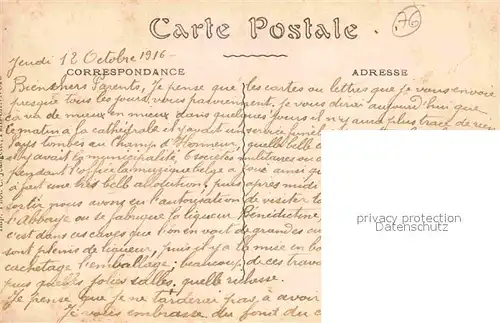 Carte Postale
76
Jeudi 12 Octobre 1916
CORRESPONDANCE
ADRESSE
Bien chers Parents, je pense que les cartes ou lettres que je vous envoie
presque tous les jours, vous parviennent. Je vous dirai aujourd'hui que
ça va de mieux en mieux dans quelques jours il n'y aura plus trace de rien
matin à la cathédrale il y avait un service funèbre
pays tombés au champ d'Honneur, quelle belle c
il y avait la municipalité, 6 sociétés militaires ou c
pendant l'office la musique belge a joué ainsi q
a fait une très belle allocution, puis après midi
sortir nous avons eu l'autorisation de visiter l
Abbaye où se fabrique la liqueur Bénédictine,
c'est dans ces caves que l'on en voit de grandes cu
sont pleins de liqueur, puis il y a la mise en bo
cachetage, l'emballage; beaucoup de ces trava
puis quelles jolies salles, quelle richesse.
Je pense que je ne tarderai pas à avoir
Je vous embrasse du fond du c
privacy protection